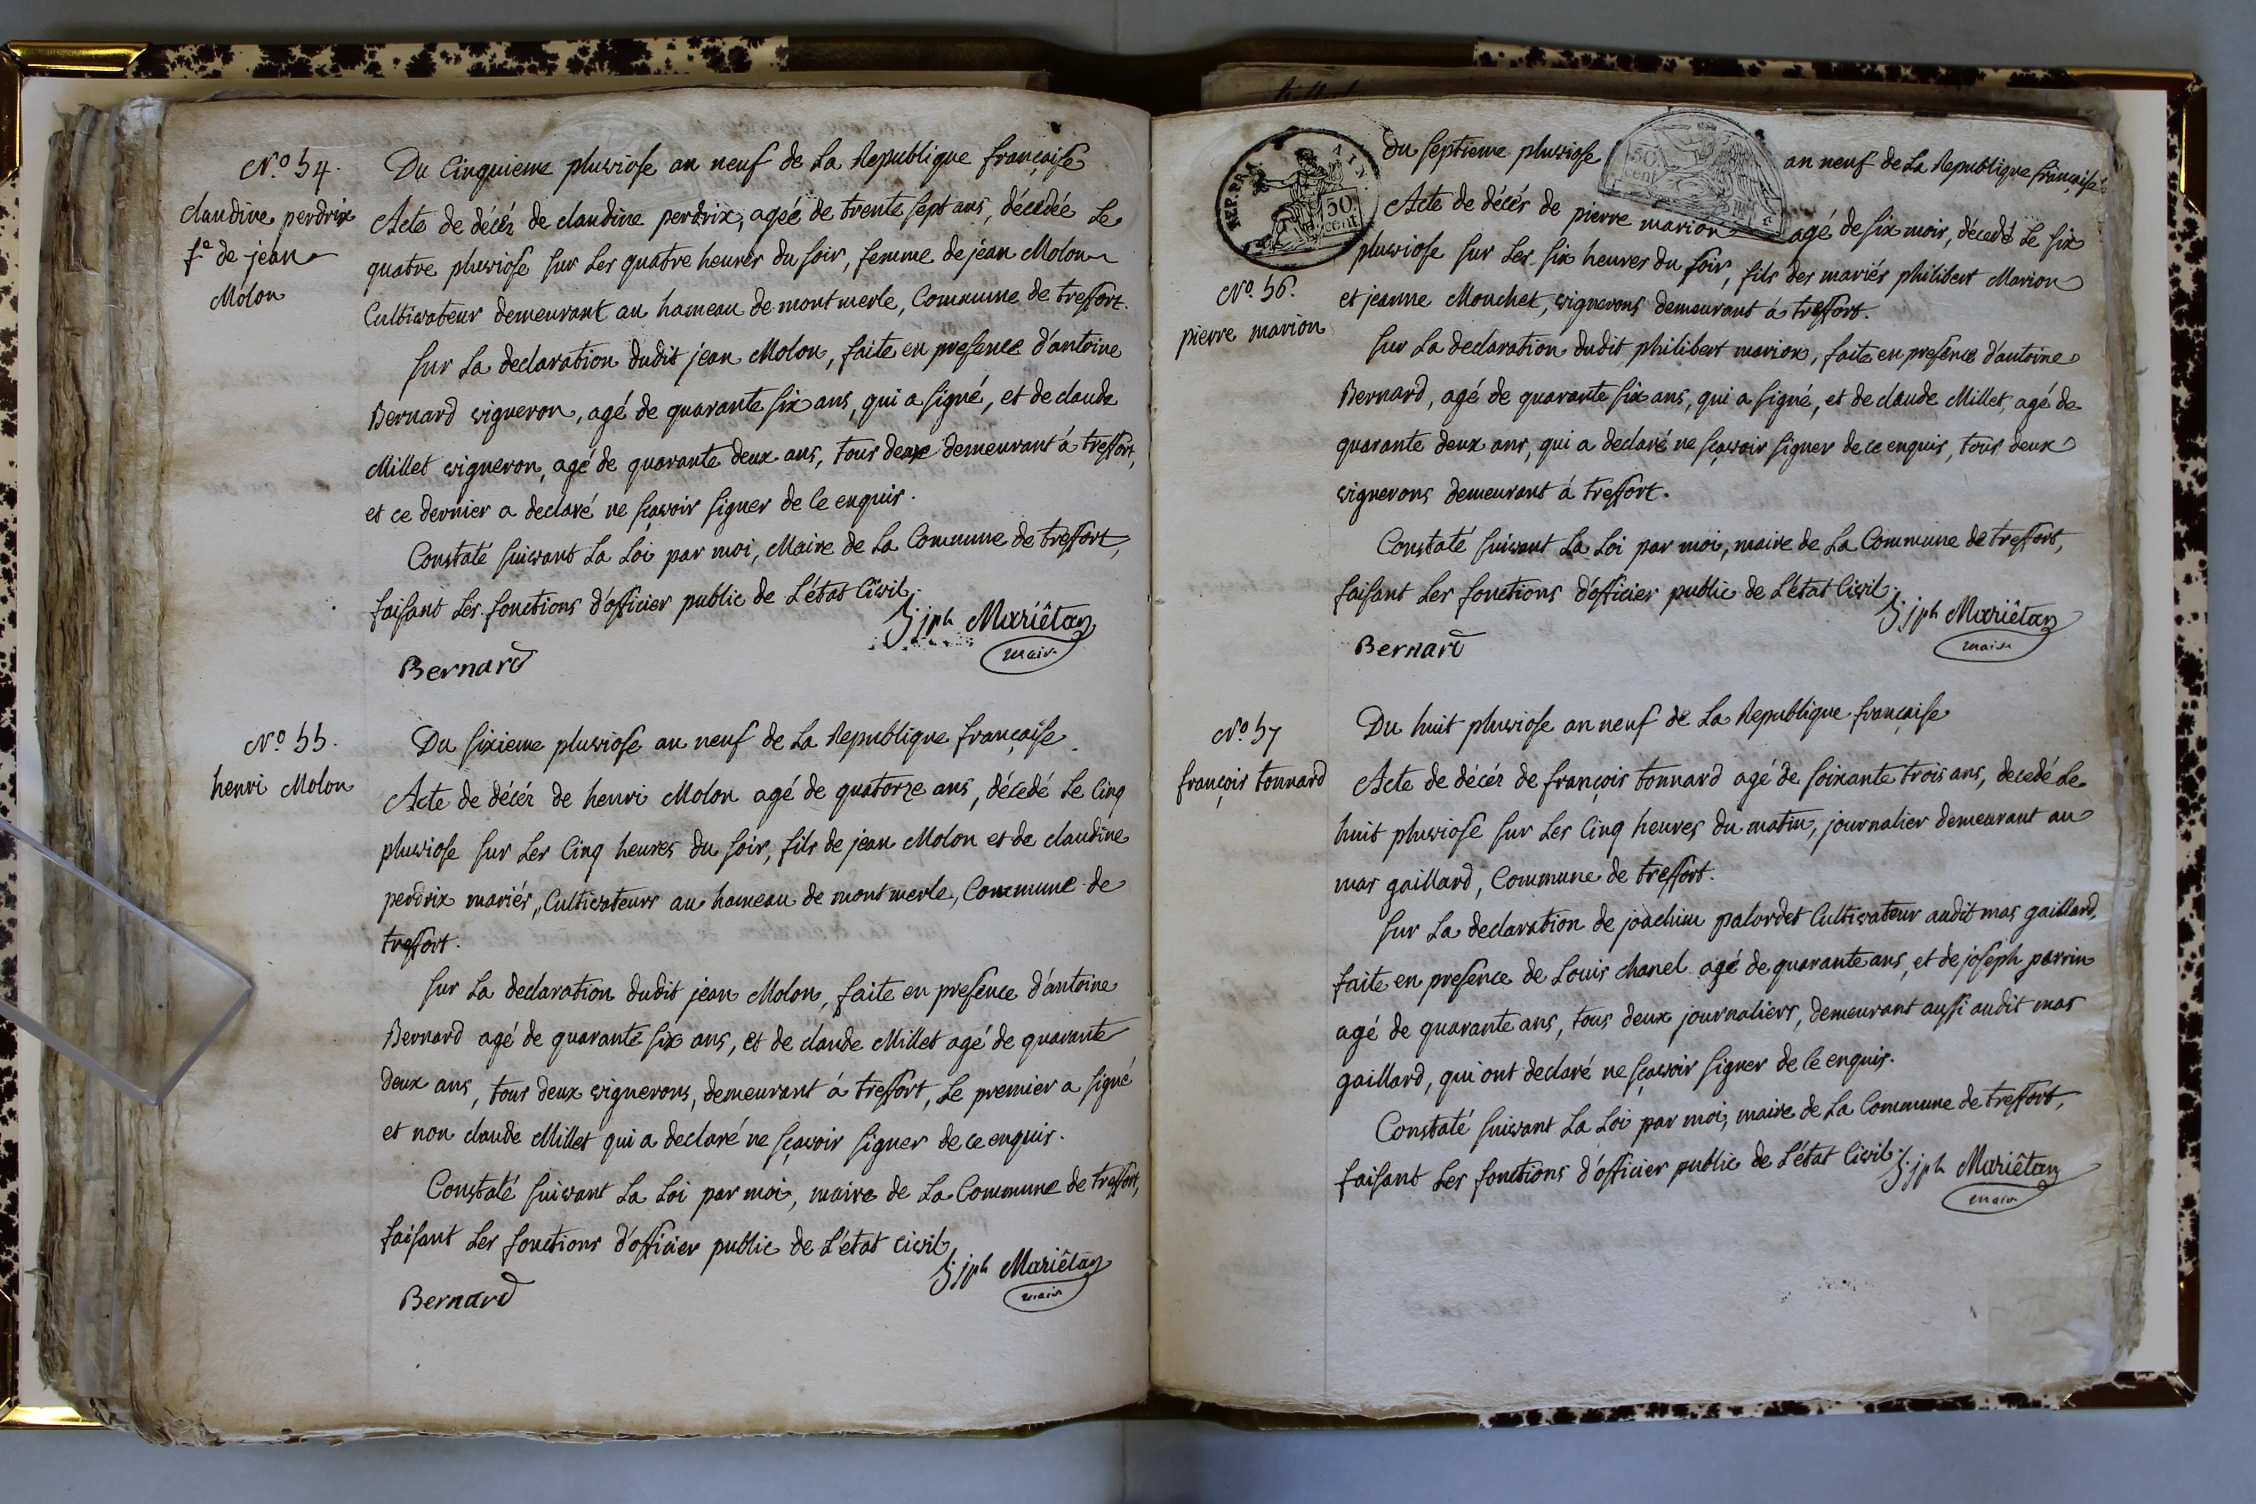 N.º 54.
claudine perdrix
fᵉ de jean
Molon
Du Cinquieme pluviose an neuf de La Republique française
Acte de décès de claudine perdrix, agéé de trente sept ans, décédée Le
quatre pluviose sur Les quatre heures du soir, femme de jean Molon
Cultivateur demeurant au hameau de montmerle, Commune de treffort.
sur La declaration dudit jean Molon, faite en presence d'antoine
Bernard vigneron, agé de quarante six ans, qui a signé, et de claude
Millet vigneron, agé de quarante deux ans, tous deux demeurant á treffort,
et ce dernier a declaré ne sçavoir signer de ce enquis.
Constaté suivant La Loi par moi, Maire de La Commune de treffort,
faisant Les fonctions d'officier public de L'état Civil.
jph Mariêtan
maire
Bernard
N.º 55.
henri Molon
Du sixieme pluviose an neuf de La Republique française.
Acte de décès de henri Molon agé de quatorze ans, décedé Le Cinq
pluviose sur Les Cinq heures du soir, fils de jean Molon et de claudine
perdrix mariés, Cultivateurs au hameau de montmerle, Commune de
treffort.
sur La declaration dudit jean Molon, faite en presence d'antoine
Bernard agé de quarante six ans, et de claude Millet agé de quarante
deux ans, tous deux vignerons, demeurant á treffort, Le premier a signé
et non claude Millet qui a declaré ne sçavoir signer de ce enquis.
Constaté suivant La Loi par moi, maire de La Commune de treffort,
faisant Les fonctions d'officier public de L'état civil
jph Mariêtan
maire
Bernard
REP. FRA.
50
cent
50
cent
N.º 56.
pierre marion
Du septieme pluviose an neuf de La Republique française
Acte de décés de pierre marion agé de six mois, décedé Le six
pluviose sur Les six heures du soir, fils des mariés philibert Marion
et jeanne Mouchet, vignerons demeurant á treffort.
sur La declaration dudit philibert marion, faite en presence d'antoine
Bernard, agé de quarante six ans, qui a signé, et de claude Millet, agé de
quarante deux ans, qui a declaré ne sçavoir signer de ce enquis, tous deux
vignerons demeurant á treffort.
Constaté suivant La Loi par moi, maire de La Commune de treffort,
faisant Les fonctions d'officier public de L'état Civil.
jph Mariêtan
maire
Bernard
N.º 57
françois tonnard
Du huit pluviose an neuf de La Republique française
Acte de décès de françois tonnard agé de soixante trois ans, decedé Le
huit pluviose sur Les Cinq heures du matin, journalier demeurant au
mas gaillard, Commune de treffort.
sur La declaration de joachim palordet Cultivateur audit mas gaillard,
faite en presence de Louis chanel agé de quarante ans, et de joseph parrin
agé de quarante ans, tous deux journaliers, demeurant aussi audit mas
gaillard, qui ont declaré ne sçavoir signer de ce enquis.
Constaté suivant La Loi par moi, maire de La Commune de treffort,
faisant Les fonctions d'officier public de L'état Civil.
jph Mariêtan
maire